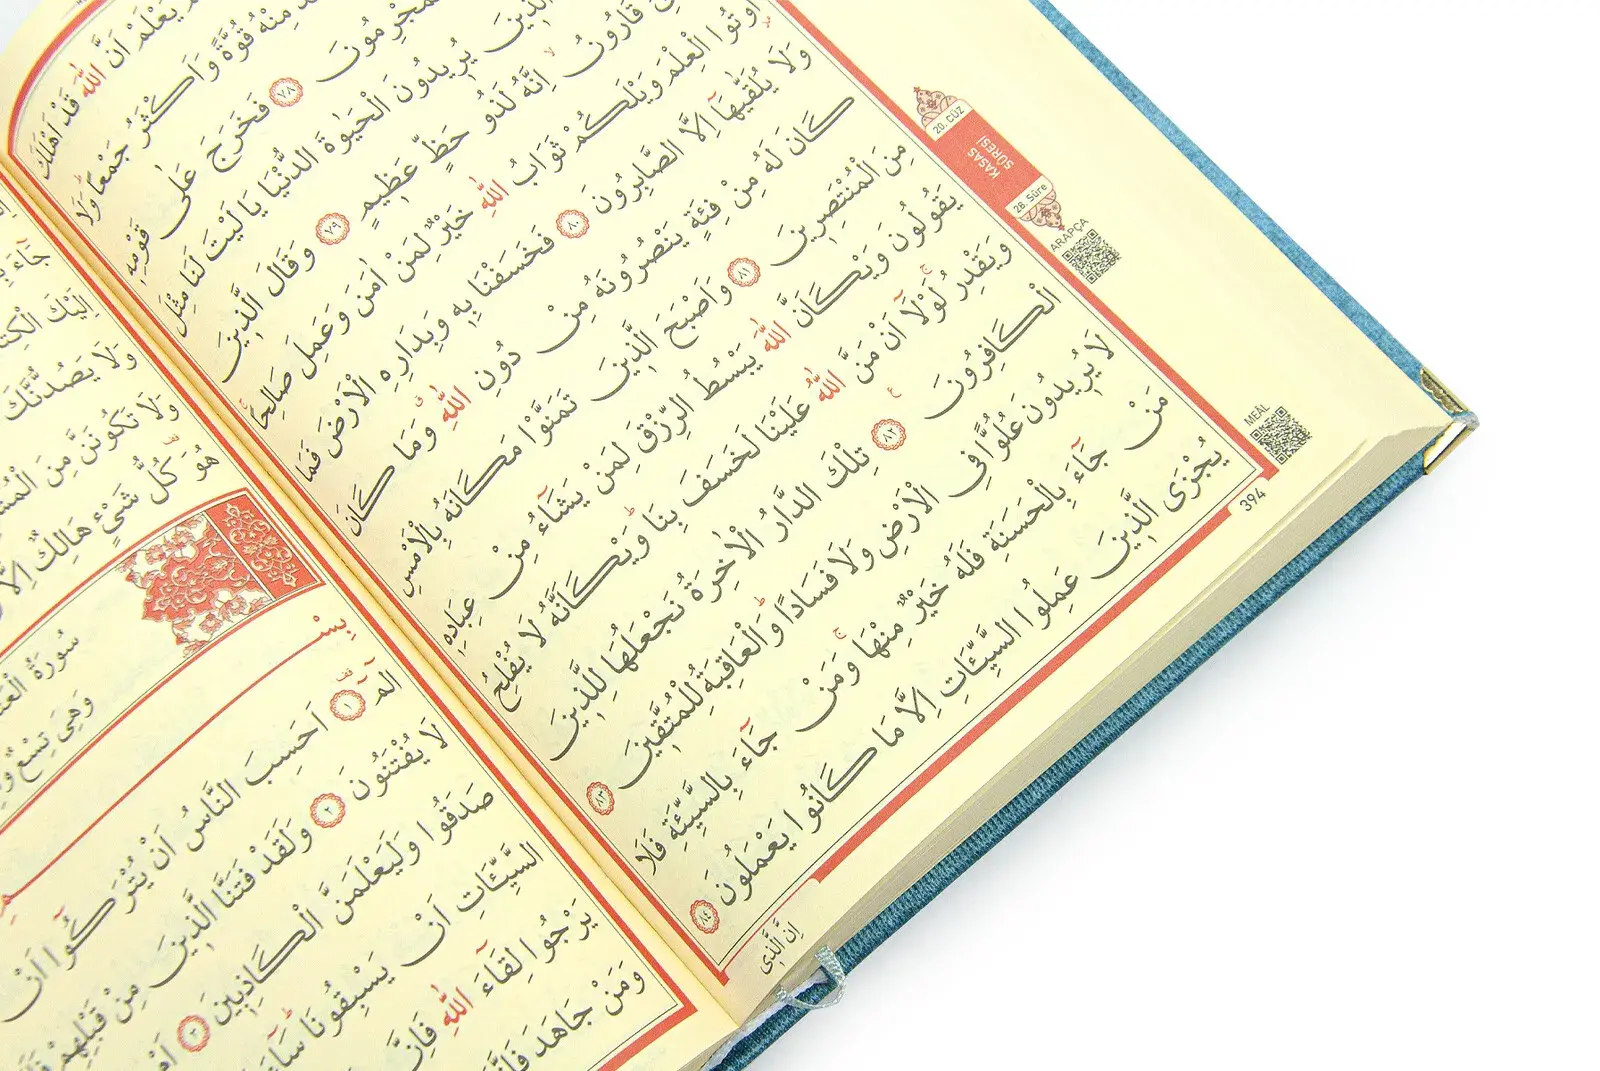 يَعْلَمْ اَنَّ اللّٰهَ قَدْ اَهْلَكَ
مِنْهُ قُوَّةً وَاَكْثَرُ جَمْعًا وَلَا
الْمُجْرِمُونَ ٧٨ فَخَرَجَ عَلٰى قَوْمِهٖ
الَّذٖينَ يُرٖيدُونَ الْحَيٰوةَ الدُّنْيَا يَا لَيْتَ لَنَا مِثْلَ
قَارُونُ اِنَّهُ لَذُو حَظٍّ عَظٖيمٍ ٧٩ وَقَالَ الَّذٖينَ
اُوتُوا الْعِلْمَ وَيْلَكُمْ ثَوَابُ اللّٰهِ خَيْرٌ لِمَنْ اٰمَنَ وَعَمِلَ صَالِحًا
وَلَا يُلَقّٰيهَٓا اِلَّا الصَّابِرُونَ ٨٠ فَخَسَفْنَا بِهٖ وَبِدَارِهِ الْاَرْضَ فَمَا
كَانَ لَهُ مِنْ فِئَةٍ يَنْصُرُونَهُ مِنْ دُونِ اللّٰهِ وَمَا كَانَ
مِنَ الْمُنْتَصِرٖينَ ٨١ وَاَصْبَحَ الَّذٖينَ تَمَنَّوْا مَكَانَهُ بِالْاَمْسِ
يَقُولُونَ وَيْكَاَنَّ اللّٰهَ يَبْسُطُ الرِّزْقَ لِمَنْ يَشَٓاءُ مِنْ عِبَادِهٖ
وَيَقْدِرُ لَوْلَٓا اَنْ مَنَّ اللّٰهُ عَلَيْنَا لَخَسَفَ بِنَا وَيْكَاَنَّهُ لَا يُفْلِحُ
الْكَافِرُونَ ٨٢ تِلْكَ الدَّارُ الْاٰخِرَةُ نَجْعَلُهَا لِلَّذٖينَ
لَا يُرٖيدُونَ عُلُوًّا فِى الْاَرْضِ وَلَا فَسَادًا وَالْعَاقِبَةُ لِلْمُتَّقٖينَ ٨٣
مَنْ جَٓاءَ بِالْحَسَنَةِ فَلَهُ خَيْرٌ مِنْهَا وَمَنْ جَٓاءَ بِالسَّيِّئَةِ فَلَا
يُجْزَى الَّذٖينَ عَمِلُوا السَّيِّـَٔاتِ اِلَّا مَا كَانُوا يَعْمَلُونَ ٨٤
اِنَّ الَّذٖى
394
20. CÜZ
KASAS
SÛRESİ
28. Sûre
ARAPÇA
MEÂL
جَٓاءَ
اِلَيْكَ
وَلَا يَصُدُّنَّكَ
وَلَا تَكُونَنَّ مِنَ
هُوَ كُلُّ شَىْءٍ هَالِكٌ اِلَّا
سُورَةُ
وَهِىَ تِسْعٌ
بِسْمِ
الٓمٓ ١ اَحَسِبَ النَّاسُ اَنْ يُتْرَكُٓوا اَنْ
لَا يُفْتَنُونَ ٢ وَلَقَدْ فَتَنَّا الَّذٖينَ مِنْ قَبْلِهِمْ
صَدَقُوا وَلَيَعْلَمَنَّ الْكَاذِبٖينَ ٣ اَمْ
السَّيِّـَٔاتِ اَنْ يَسْبِقُونَا سَٓاءَ
يَرْجُوا لِقَٓاءَ اللّٰهِ فَاِنَّ
وَمَنْ جَاهَدَ فَاِنَّمَا